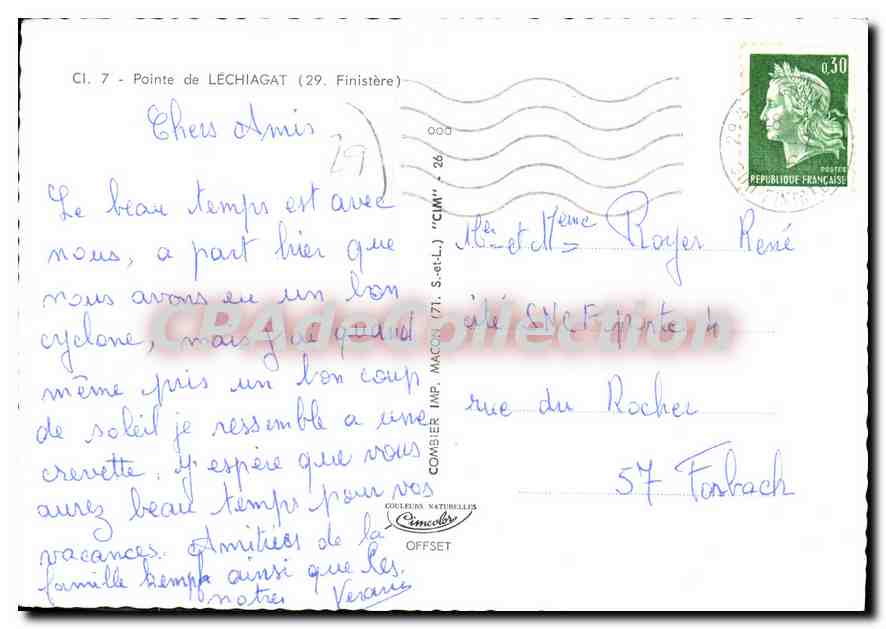 Cl. 7 - Pointe de LÉCHIAGAT (29. Finistère)
Chers Amis
29
Le beau temps est avec
nous, a part hier que
nous avons eu un bon
cyclone, mais j'ai quand
même pris un bon coup
de soleil je ressemble a une
crevette. J'espère que vous
aurez beau temps pour vos
vacances. Amitiés de la
famille ainsi que les
notres
COMBIER IMP. MACON (71. S.-et-L.) "CIM" - 26 000
COULEURS NATURELLES
Cimcolor
OFFSET
0,30
POSTES
REPUBLIQUE FRANÇAISE
29
FINISTERE
Mr et Mme Royer René
cité SNCF porte 4
rue du Rocher
57 Forbach
CPAdeCollection